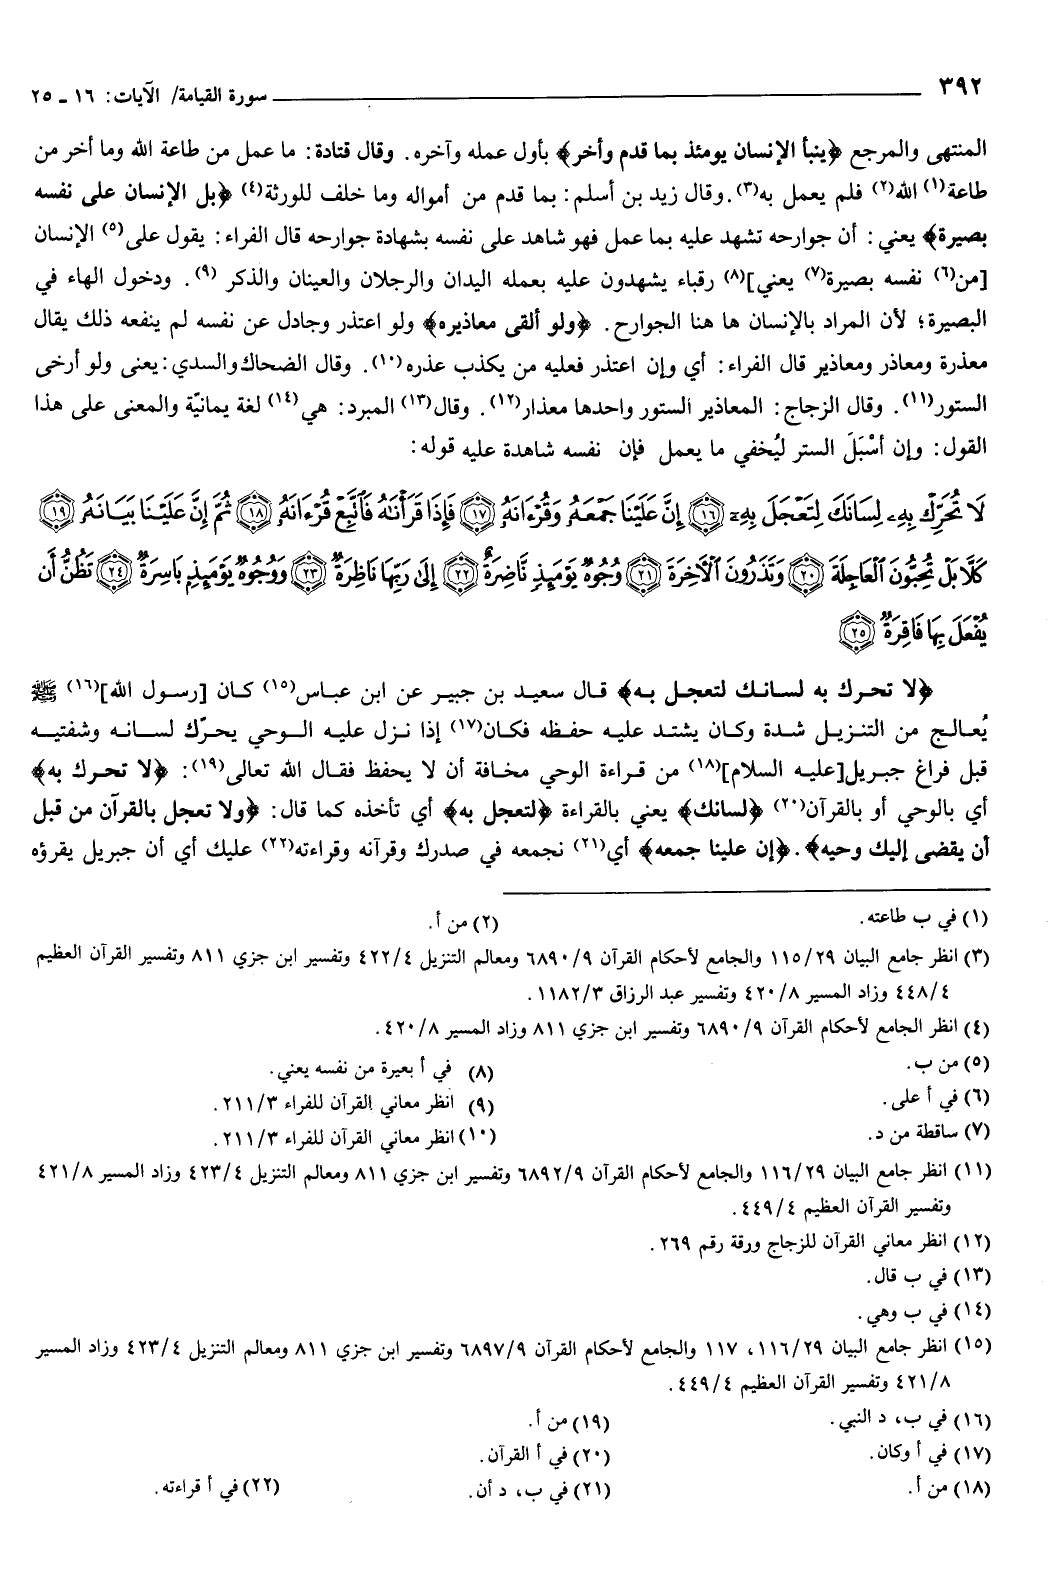 ٣٩٢ سورة القيامة/ الآيات: ١٦ ـ ٢٥
المنتهى والمرجع ﴿ينبأ الإنسان يومئذ بما قدم وأخر﴾ بأول عمله وآخره. وقال قتادة: ما عمل من طاعة الله وما أخر من
طاعة(١) الله(٢) فلم يعمل به(٣). وقال زيد بن أسلم: بما قدم من أمواله وما خلف للورثة(٤) ﴿بل الإنسان على نفسه
بصيرة﴾ يعني: أن جوارحه تشهد عليه بما عمل فهو شاهد على نفسه بشهادة جوارحه قال الفراء: يقول على(٥) الإنسان
[من(٦) نفسه بصيرة(٧) يعني](٨) رقباء يشهدون عليه بعمله اليدان والرجلان والعينان والذكر(٩). ودخول الهاء في
البصيرة؛ لأن المراد بالإنسان ها هنا الجوارح. ﴿ولو ألقى معاذيره﴾ ولو اعتذر وجادل عن نفسه لم ينفعه ذلك يقال
معذرة ومعاذر ومعاذير قال الفراء: أي وإن اعتذر فعليه من يكذب عذره(١٠). وقال الضحاك والسدي: يعنى ولو أرخى
الستور(١١). وقال الزجاج: المعاذير الستور واحدها معذار(١٢). وقال(١٣) المبرد: هي(١٤) لغة يمانيّة والمعنى على هذا
القول: وإن أسْبَلَ الستر ليُخفي ما يعمل فإن نفسه شاهدة عليه قوله:
لَا تُحَرِّكْ بِهِۦ لِسَانَكَ لِتَعْجَلَ بِهِۦٓ ﴿١٦﴾ إِنَّ عَلَيْنَا جَمْعَهُۥ وَقُرْءَانَهُۥ ﴿١٧﴾ فَإِذَا قَرَأْنَٰهُ فَٱتَّبِعْ قُرْءَانَهُۥ ﴿١٨﴾ ثُمَّ إِنَّ عَلَيْنَا بَيَانَهُۥ ﴿١٩﴾
كَلَّا بَلْ تُحِبُّونَ ٱلْعَاجِلَةَ ﴿٢٠﴾ وَتَذَرُونَ ٱلْأَخِرَةَ ﴿٢١﴾ وُجُوهٌ يَوْمَئِذٍ نَّاضِرَةٌ ﴿٢٢﴾ إِلَىٰ رَبِّهَا نَاظِرَةٌ ﴿٢٣﴾ وَوُجُوهٌ يَوْمَئِذٍ بَاسِرَةٌ ﴿٢٤﴾ تَظُنُّ أَن
يُفْعَلَ بِهَا فَاقِرَةٌ ﴿٢٥﴾
﴿لا تحرك به لسانك لتعجل به﴾ قال سعيد بن جبير عن ابن عباس(١٥) كان [رسول الله](١٦) ﷺ
يُعالج من التنزيل شدة وكان يشتد عليه حفظه فكان(١٧) إذا نزل عليه الوحي يحرّك لسانه وشفتيه
قبل فراغ جبريل[عليه السلام](١٨) من قراءة الوحي مخافة أن لا يحفظ فقال الله تعالى(١٩): ﴿لا تحرك به﴾
أي بالوحي أو بالقرآن(٢٠) ﴿لسانك﴾ يعني بالقراءة ﴿لتعجل به﴾ أي تأخذه كما قال: ﴿ولا تعجل بالقرآن من قبل
أن يقضى إليك وحيه﴾. ﴿إن علينا جمعه﴾ أي(٢١) نجمعه في صدرك وقرآنه وقراءته(٢٢) عليك أي أن جبريل يقرؤه
(١) في ب طاعته. (٢) من أ.
(٣) انظر جامع البيان ١١٥/٢٩ والجامع لأحكام القرآن ٦٨٩٠/٩ ومعالم التنزيل ٤٢٢/٤ وتفسير ابن جزي ٨١١ وتفسير القرآن العظيم
٤٤٨/٤ وزاد المسير ٤٢٠/٨ وتفسير عبد الرزاق ١١٨٢/٣.
(٤) انظر الجامع لأحكام القرآن ٦٨٩٠/٩ وتفسير ابن جزي ٨١١ وزاد المسير ٤٢٠/٨.
(٥) من ب. (٨) في أ بعيرة من نفسه يعني.
(٦) في أ على. (٩) انظر معاني القرآن للفراء ٢١١/٣.
(٧) ساقطة من د. (١٠) انظر معاني القرآن للفراء ٢١١/٣.
(١١) انظر جامع البيان ١١٦/٢٩ والجامع لأحكام القرآن ٦٨٩٢/٩ وتفسير ابن جزي ٨١١ ومعالم التنزيل ٤٢٣/٤ وزاد المسير ٤٢١/٨
وتفسير القرآن العظيم ٤٤٩/٤.
(١٢) انظر معاني القرآن للزجاج ورقة رقم ٢٦٩.
(١٣) في ب قال.
(١٤) في ب وهي.
(١٥) انظر جامع البيان ١١٦/٢٩، ١١٧ والجامع لأحكام القرآن ٦٨٩٧/٩ وتفسير ابن جزي ٨١١ ومعالم التنزيل ٤٢٣/٤ وزاد المسير
٤٢١/٨ وتفسير القرآن العظيم ٤٤٩/٤.
(١٦) في ب، د النبي. (١٩) من أ.
(١٧) في أ وكان. (٢٠) في أ القرآن.
(١٨) من أ. (٢١) في ب، د أن. (٢٢) في أ قراءته.